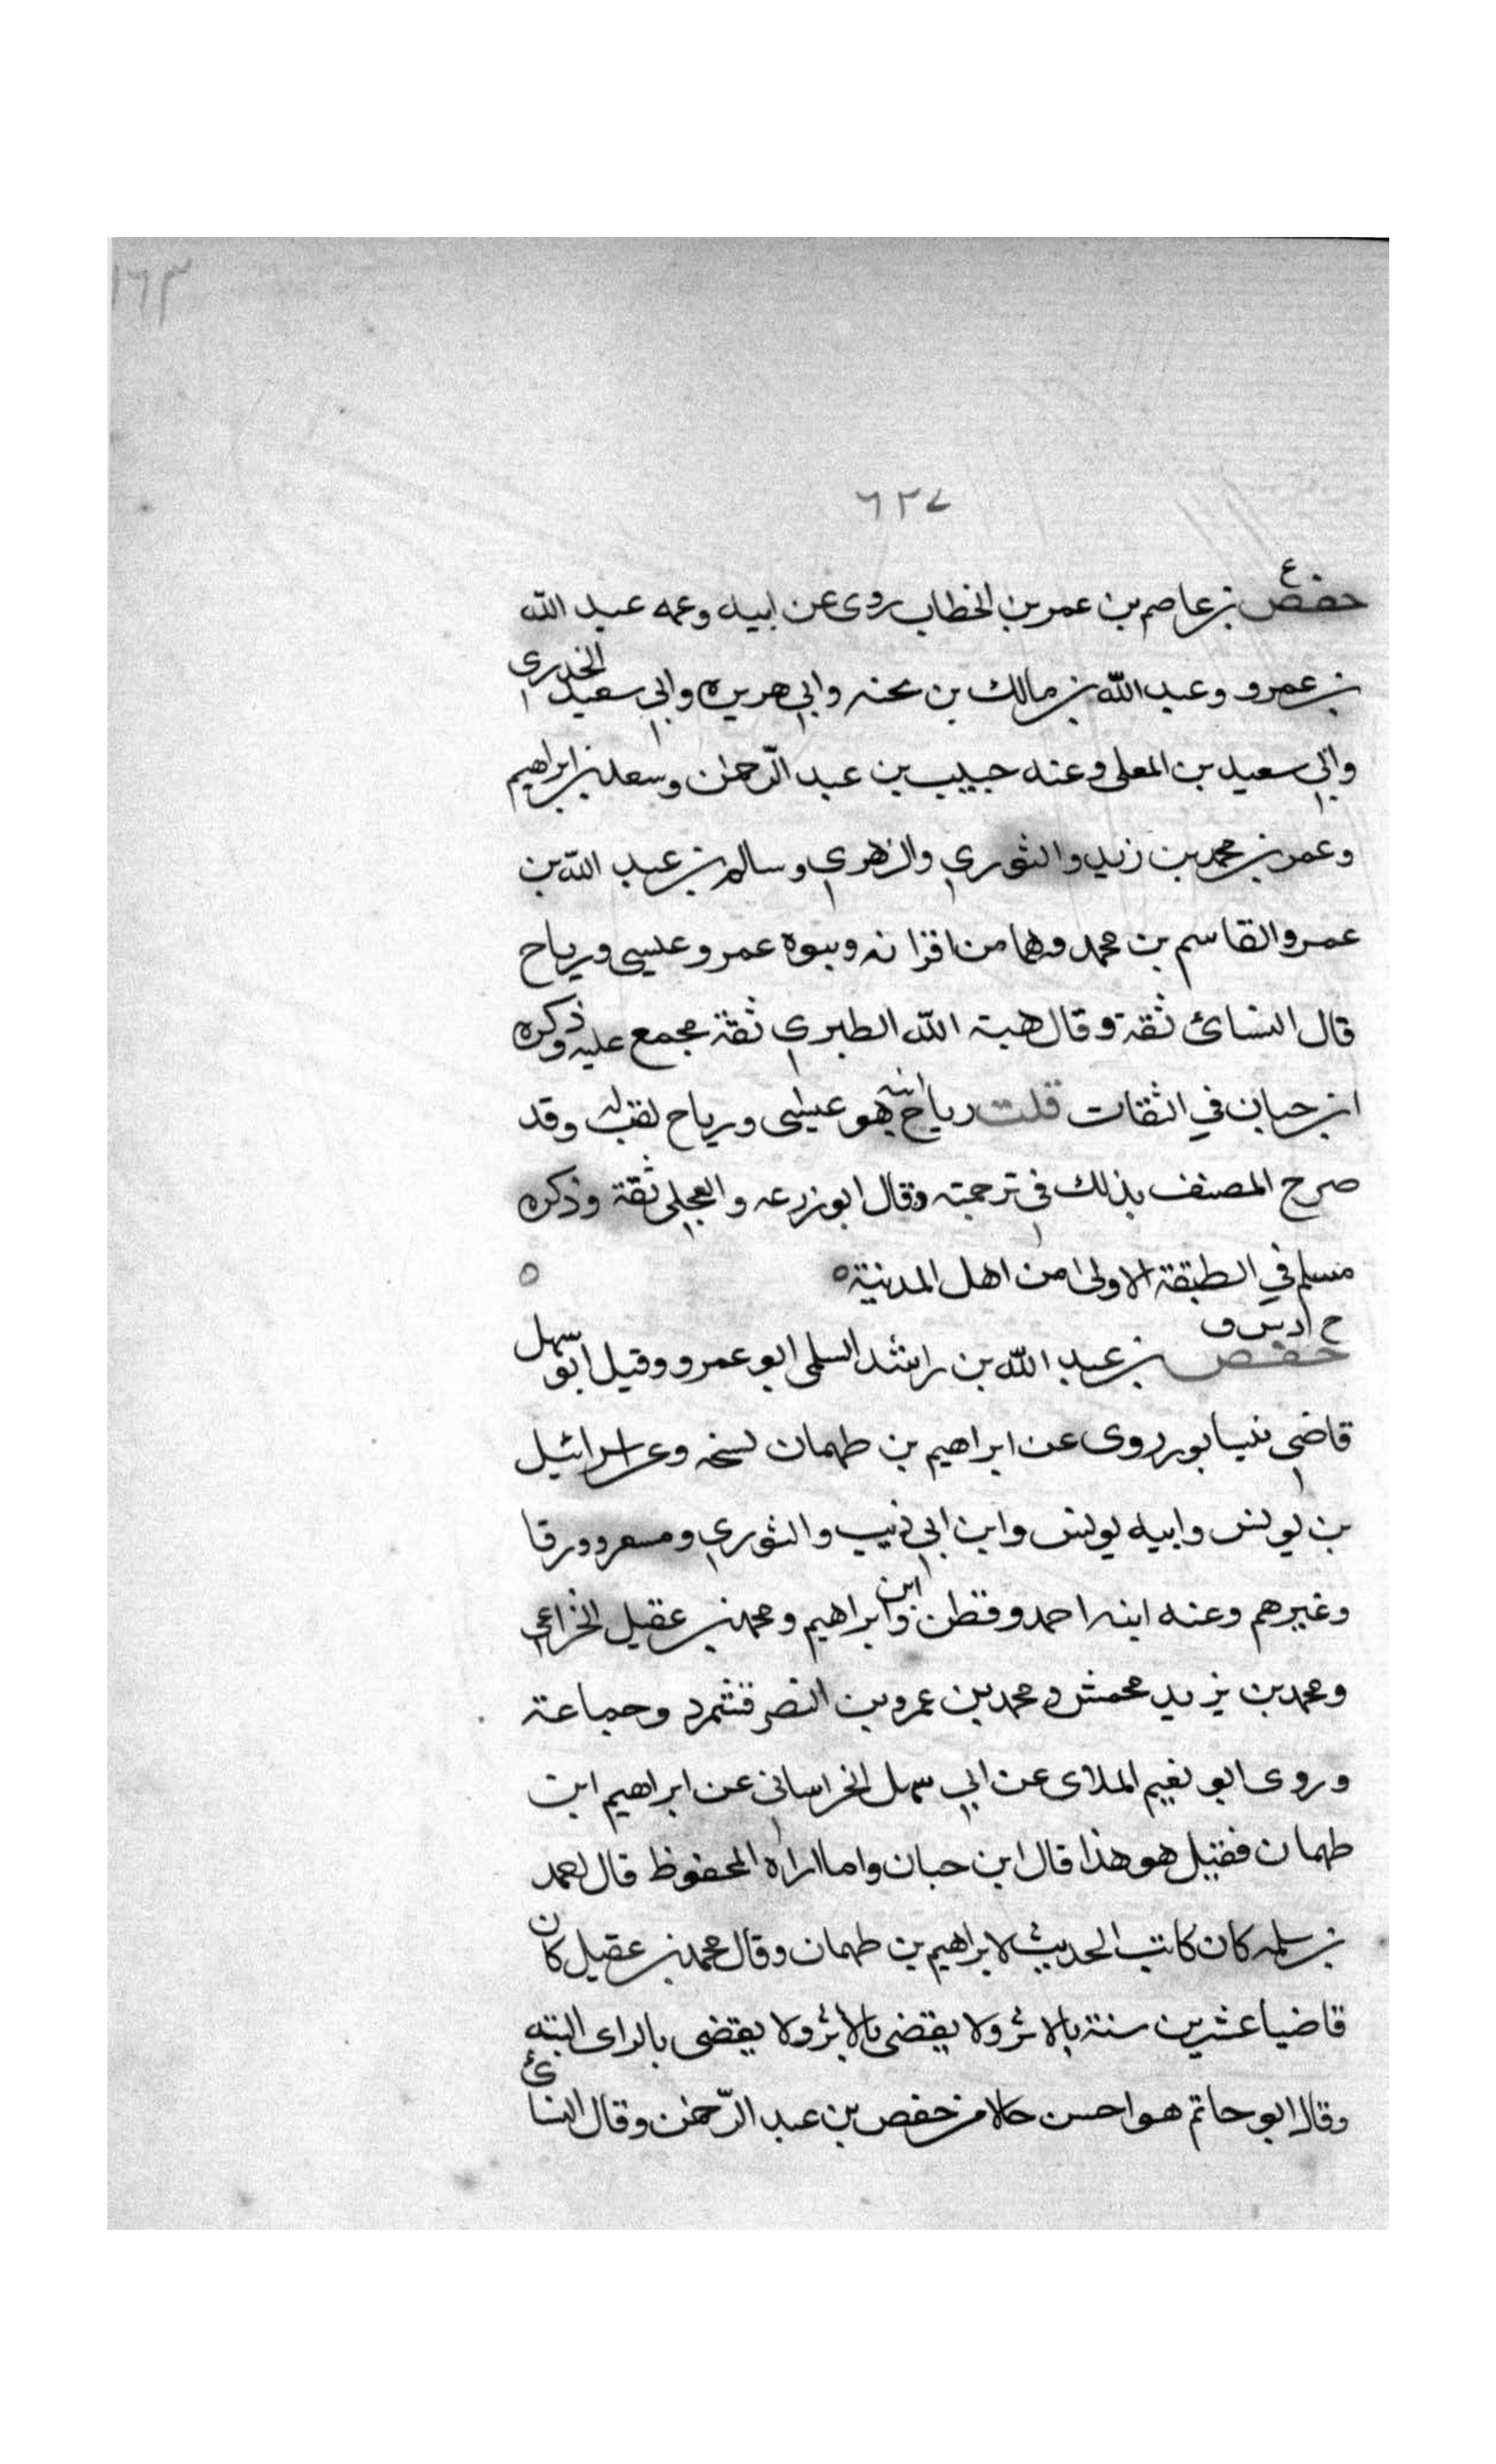 ١٦٣
٦٢٧
ع
حفص بن عاصم بن عمر بن الخطاب روى عن ابيه وعمه عبد الله
بن عمرو وعبد الله بن مالك بن بحنه وابي هريره وابي سعيد الخدري
وابي سعيد بن المعلى وعنه حبيب بن عبد الرحمن وسعد بن ابراهيم
وعمر بن محمد بن زيد والثوري والزهري وسالم بن عبد الله بن
عمر والقاسم بن محمد وهما من اقرانه وبنوه عمر وعيسى ورباح
قال النسائ ثقة وقال هبة الله الطبري ثقة مجمع عليه وذكره
ابن حبان في الثقات قلت رباح ابنه هو عيسى ورباح لقب له وقد
صرح المصنف بذلك في ترجمته وقال ابو زرعه والعجلي ثقة وذكره
مسلم في الطبقة الاولى من اهل المدينة ٥ ٥
خ د س ق
حفص بن عبد الله بن راشد السلمى ابو عمرو وقيل ابو سهل
قاضي نيسابور روى عن ابراهيم بن طهمان نسخه وعن اسرائيل
بن يونس وابيه يونس وابن ابي ذيب والثوري ومسعر وورقا
وغيرهم وعنه ابنه احمد وقطن ابن ابراهيم ومحمد بن عقيل الخزاعي
ومحمد بن يزيد محمش ومحمد بن عمرو بن النضر قشمرد وجماعة
وروى ابو نعيم الملاى عن ابي سهل الخراساني عن ابراهيم ابن
طهمان فقيل هو هذا قال ابن حبان وما اراه المحفوظ قال احمد
بن سلمه كان كاتب الحديث لابراهيم بن طهمان وقال محمد بن عقيل كان
قاضيا عشرين سنة بالاثر ولا يقضى بالاثر ولا يقضى بالراى البته
وقال ابو حاتم هو احسن حالا من حفص بن عبد الرحمن وقال النسائ